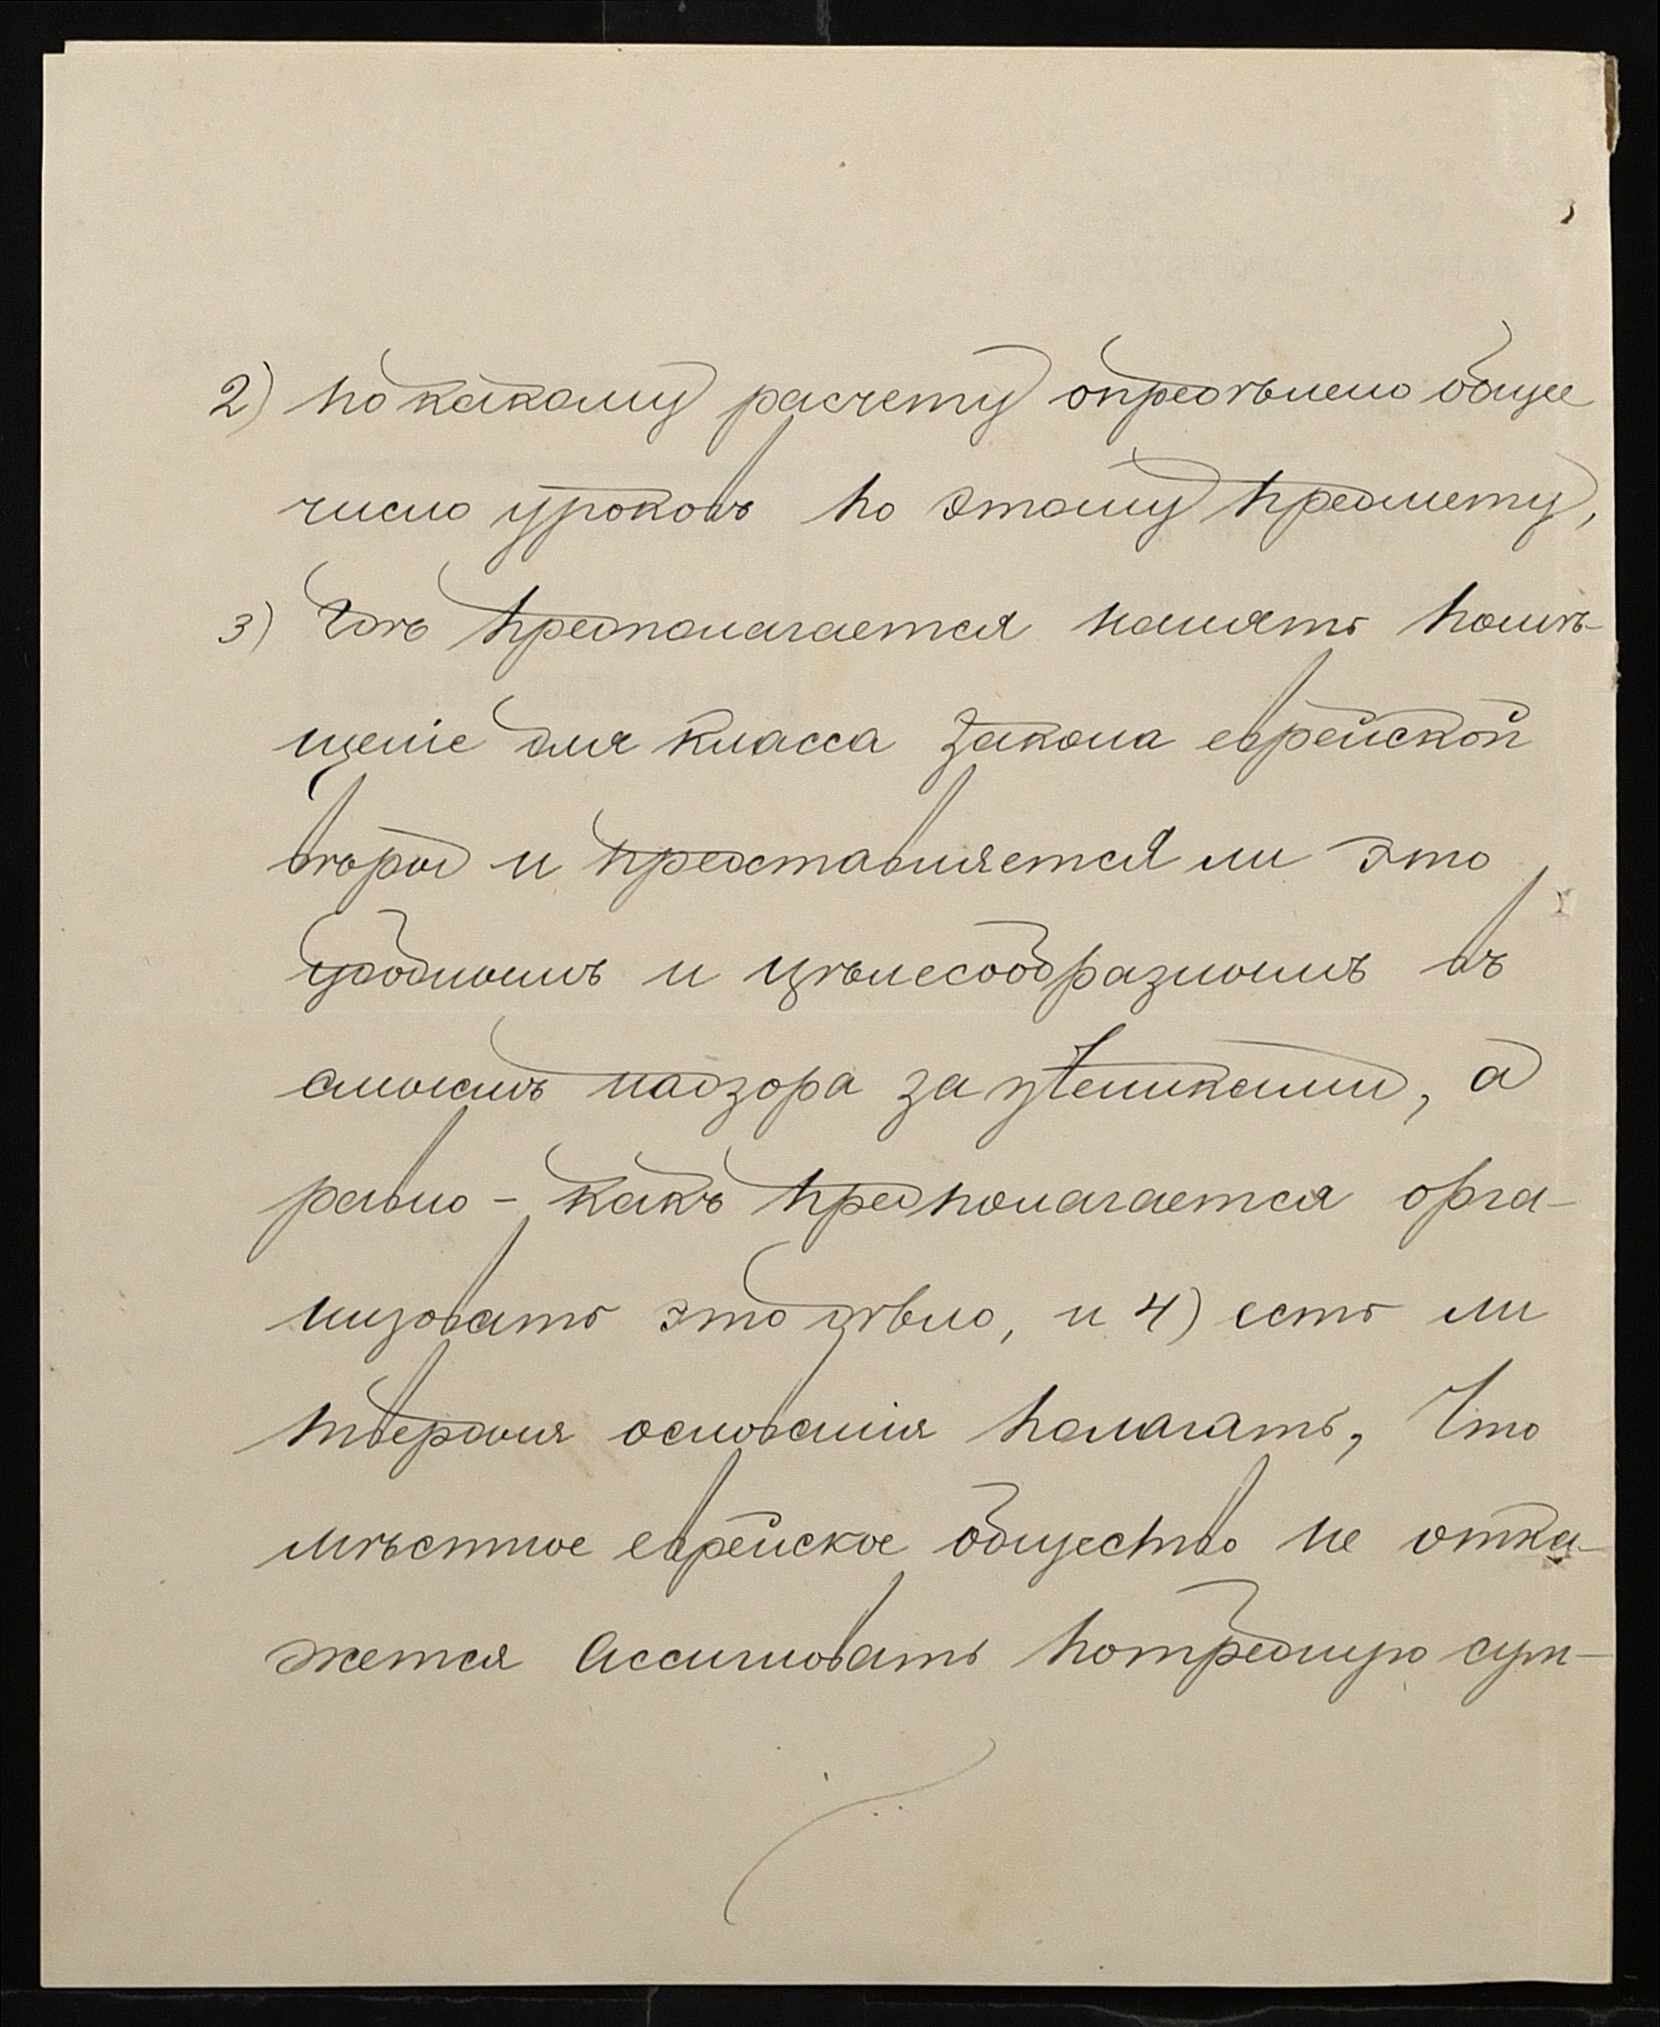 2) по какому расчету опредѣлено общее
число уроковъ по этому предмету,
3) Гдѣ предполагается нанять помѣ-
щеніе для класса Закона еврейской
вѣры и представляется ли это
удобнымъ и цѣлесообразнымъ въ
смыслѣ надзора за учениками, а
равно - какъ предполагается орга-
низовать это дѣло, и 4) есть ли
твердыя основанія полагать, что
мѣстное еврейское общество не отка-
жется ассигновать потребную сум-